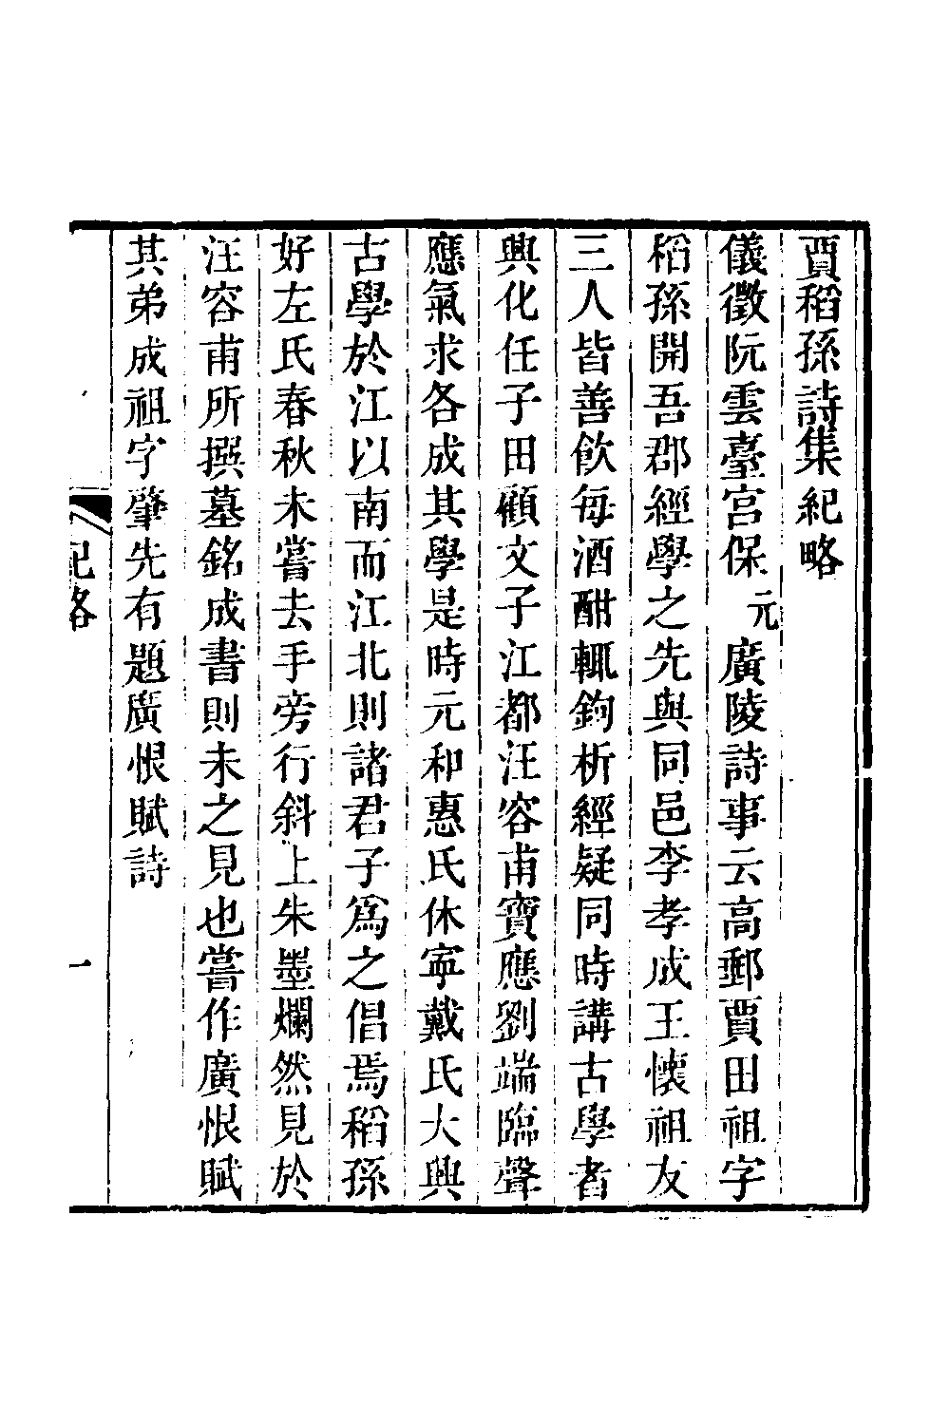 賈稻孫詩集紀略
儀徵阮雲臺宮保元廣陵詩事云高郵賈田祖字
稻孫開吾郡經學之先與同邑李孝成王懷祖友
三人皆善飲每酒酣輒鉤析經疑同時講古學者
興化任子田顧文子江都汪容甫寶應劉端臨聲
應氣求各成其學是時元和惠氏休寧戴氏大興
古學於江以南而江北則諸君子爲之倡焉稻孫
好左氏春秋未嘗去手旁行斜上朱墨爛然見於
汪容甫所撰墓銘成書則未之見也嘗作廣恨賦
其弟成祖字肇先有題廣恨賦詩
紀略
一